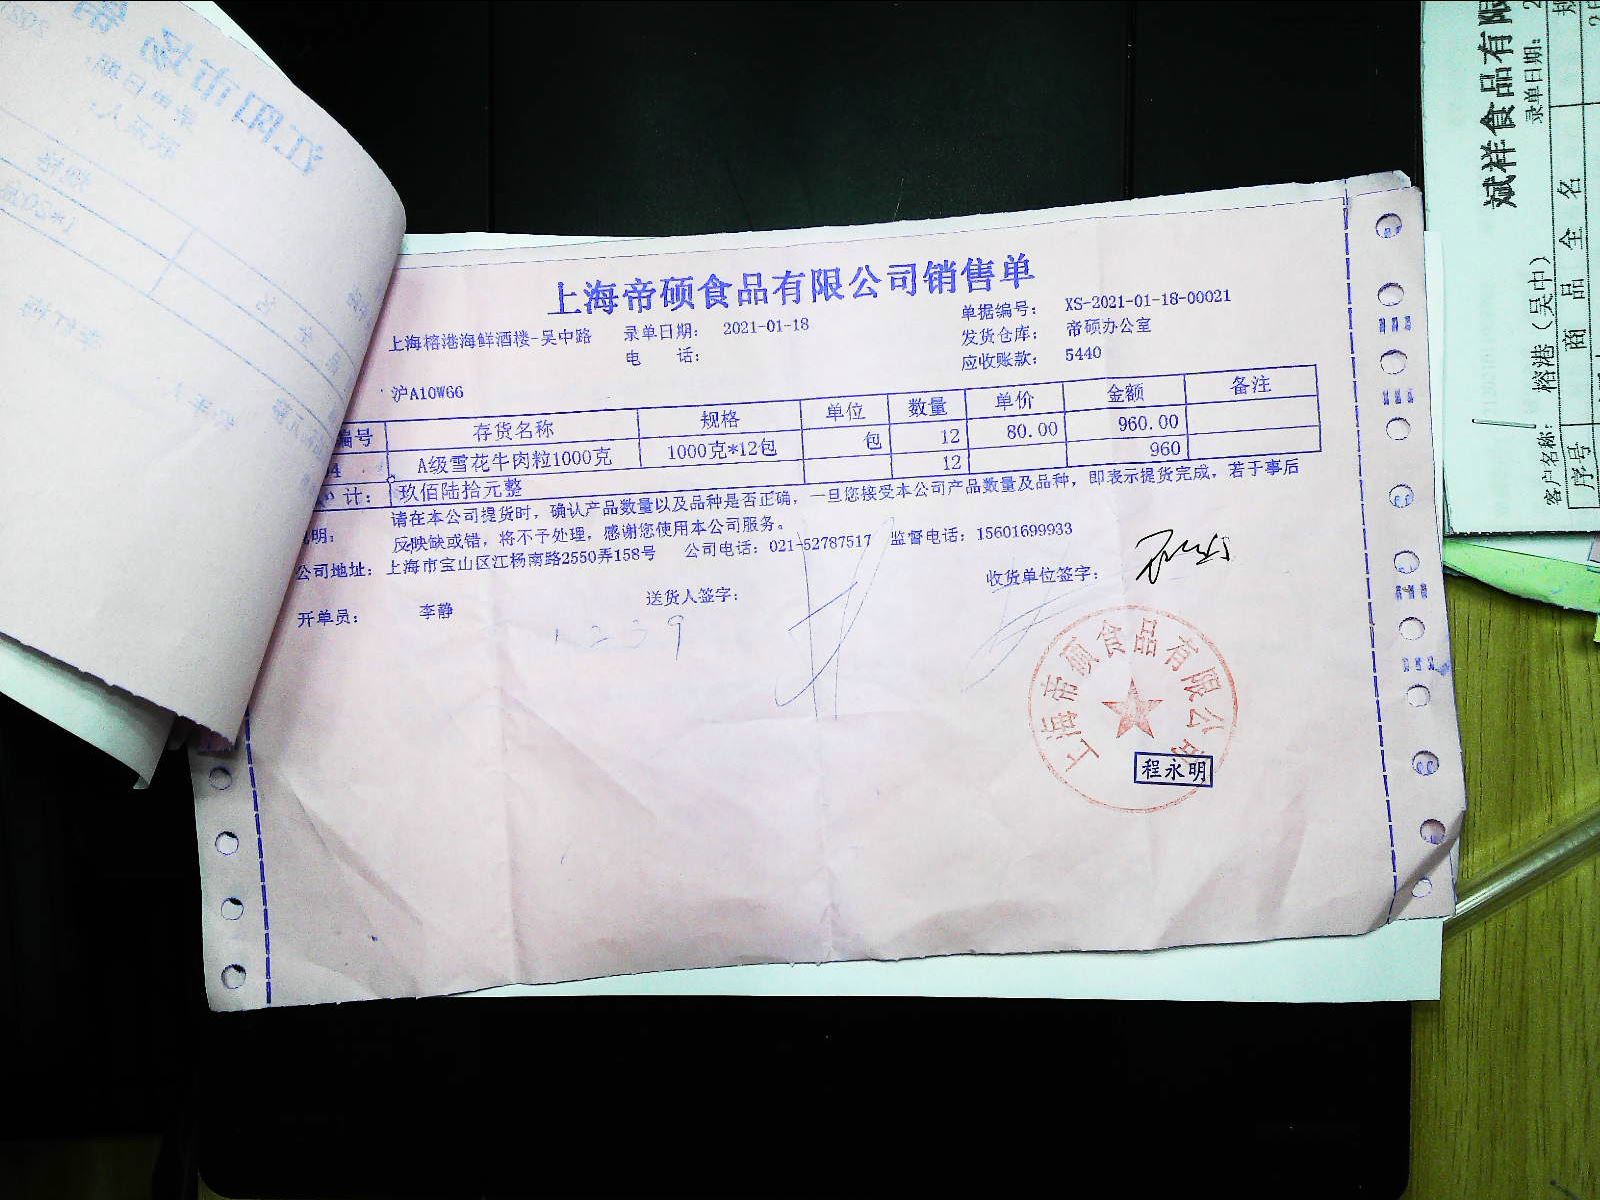 上海帝硕食品有限公司销售单
上海榕港海鲜酒楼-吴中路 录单日期: 2021-01-18 单据编号: XS-2021-01-18-00021
电 话: 发货仓库: 帝硕办公室
应收账款: 5440
沪A10W66
编号 存货名称 规格 单位 数量 单价 金额 备注
4 A级雪花牛肉粒1000克 1000克*12包 包 12 80.00 960.00
计: 玖佰陆拾元整 12 960
明: 请在本公司提货时，确认产品数量以及品种是否正确，一旦您接受本公司产品数量及品种，即表示提货完成，若于事后
反映缺或错，将不予处理，感谢您使用本公司服务。
公司地址: 上海市宝山区江杨南路2550弄158号 公司电话: 021-52787517 监督电话: 15601699933
开单员: 李静 送货人签字: 收货单位签字:
1239
上海帝硕食品有限公司
程永明
斌祥食品有限
录单日期: 2
客户名称: 榕港(吴中)
序号 商品全名
江阳市场